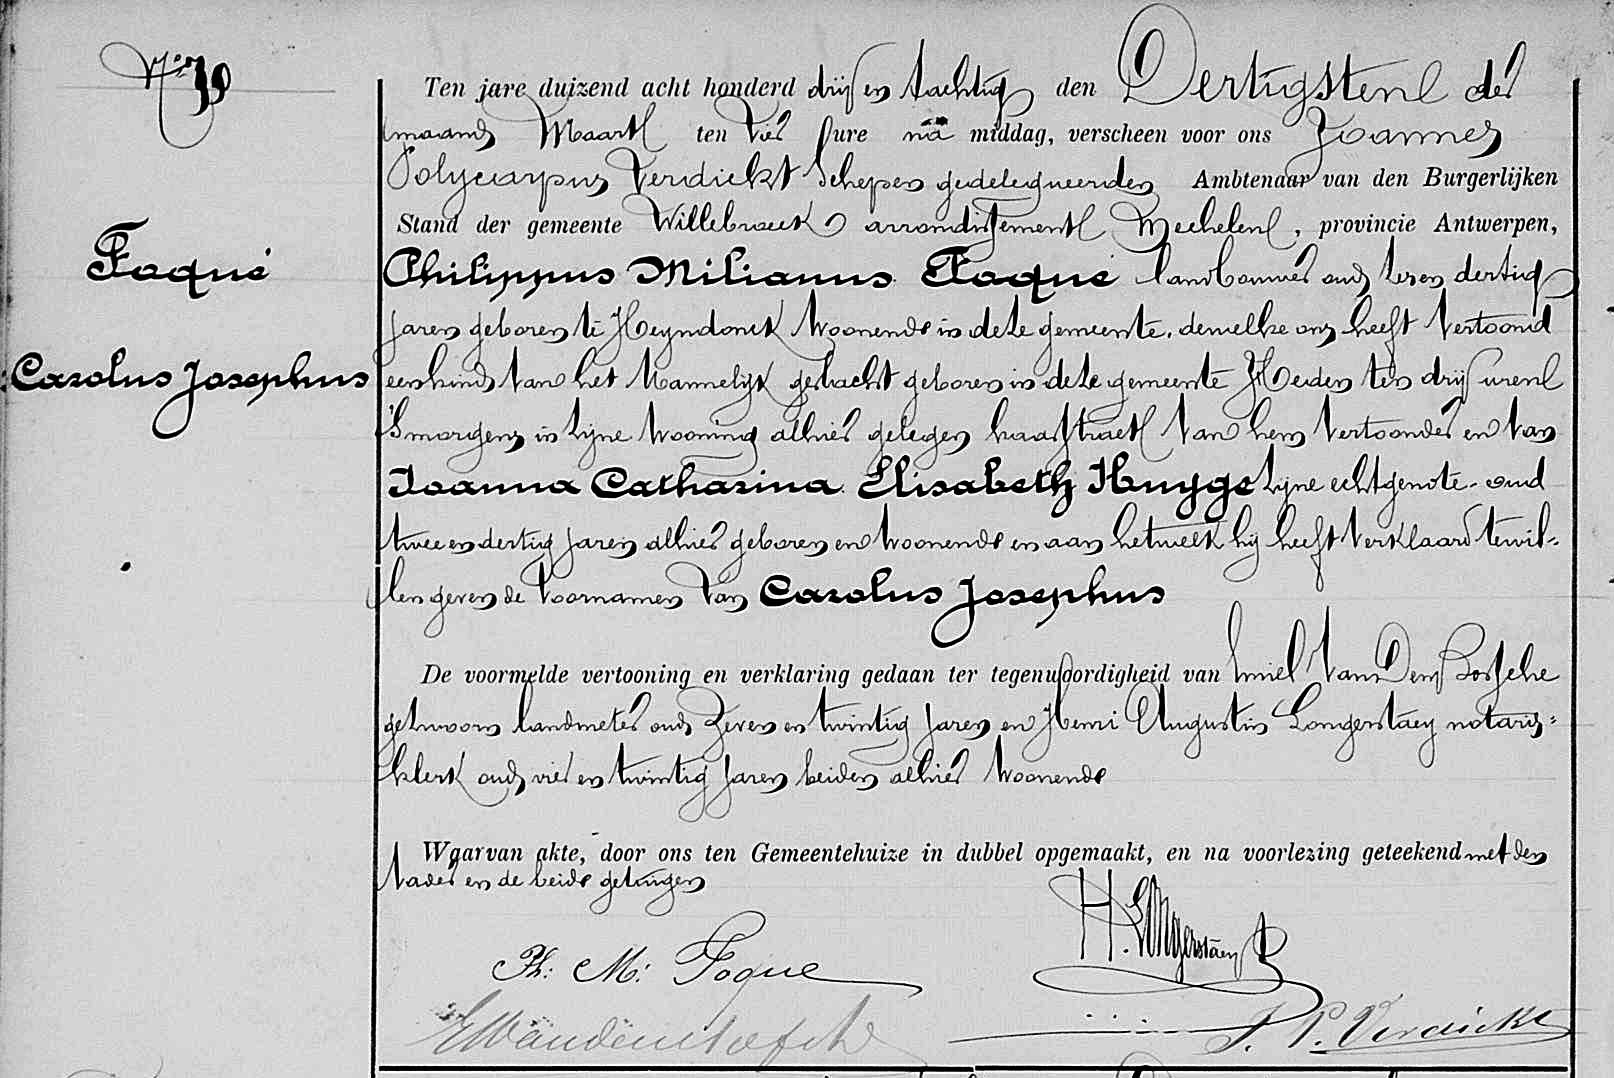 N° 79
Ten jare duizend acht honderd drij en tachtig den Dertigsten der
maand Maart ten vier ure na middag, verscheen voor ons Joannes
Polycarpus Verdickt Schepen gedelegueerden Ambtenaar van den Burgerlijken
Stand der gemeente Willebroeck arrondissement Mechelen, provincie Antwerpen,
Foqué
Philippus Milianus Foqué landbouwer oud zesen dertig
jaren geboren te Heyndonck woonende in deze gemeente, dewelke ons heeft vertoond
Carolus Josephus
een kind van het mannelijk geslacht geboren in deze gemeente Heden ten drij uren
's morgens in zijne wooning alhier gelegen kaasstraet van hem vertooner en van
Joanna Catharina Elisabeth Huyge zijne echtgenote oud
twee en dertig jaren alhier geboren en woonende en aan hetwelk hij heeft verklaard te wil-
len geven de voornamen van Carolus Josephus
De voormelde vertooning en verklaring gedaan ter tegenwoordigheid van Emiel Van Den Bossche
gezworen landmeter oud zeven en twintig jaren en Henri Augustin Longerstaey notaris-
klerk oud vier en twintig jaren beiden alhier woonende
Waarvan akte, door ons ten Gemeentehuize in dubbel opgemaakt, en na voorlezing geteekend met den
vader en de beide getuigen
H. Longerstaey
Ph: M: Foque
EVandenbossche
J. P. Verdickt